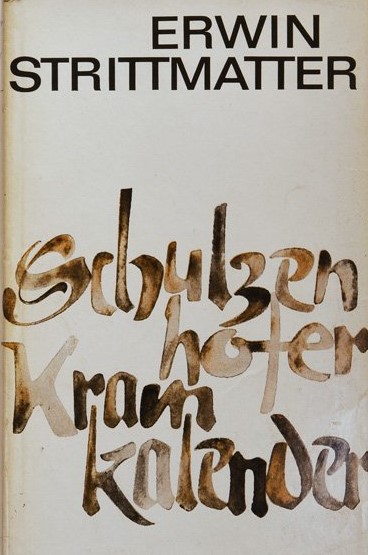 ERWIN
STRITTMATTER
Schulzen
hofer
Kram
kalender